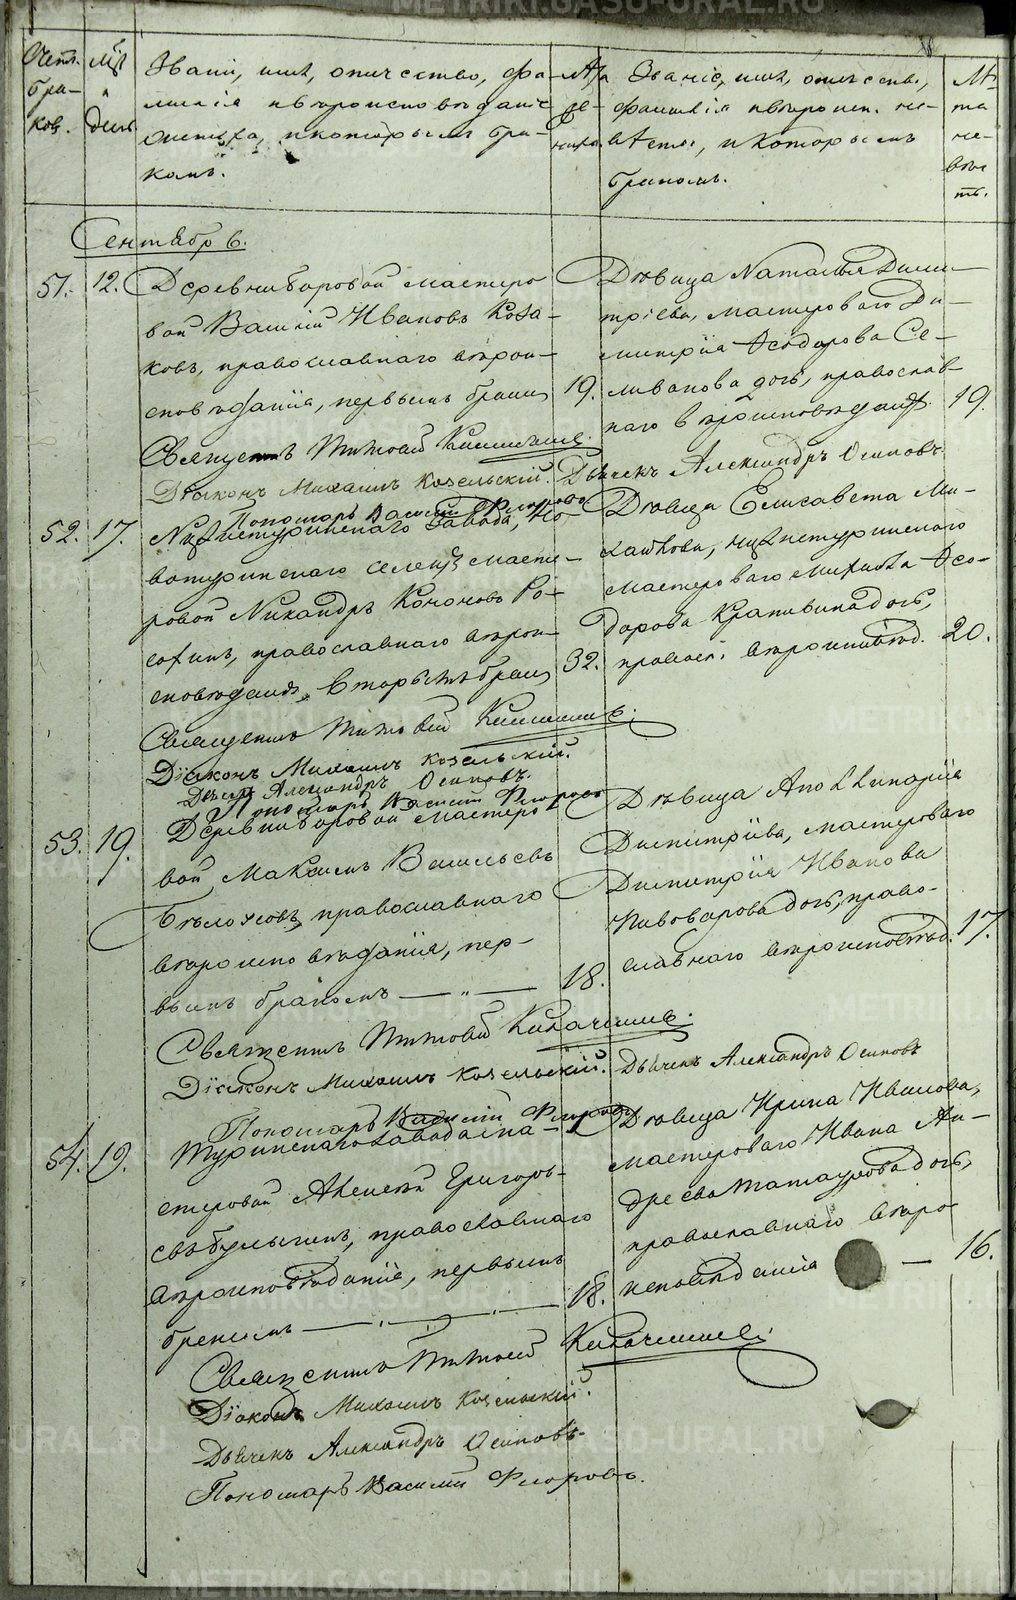 METRIKI.GASO-URAL.RU
Счетъ бра-ковъ.
Мѣс. и день
Званіе, имя, отчество, фа-
милія и вѣроисповѣданіе
жениха, и которымъ бра-
комъ.
Лѣта же-ниха.
Званіе, имя, отчество,
фамилія и вѣроисп. не-
вѣсты, и которымъ
бракомъ.
Лѣ-та не-вѣс-ты.
Сентябрь.
51. 12. Деревни Боровой мастеро-
вой Василій Ивановъ Коза-
ковъ, православнаго вѣрои-
сповѣданія, первымъ бракомъ 19.
Дѣвица Наталья Дими-
тріева, мастероваго Ди-
митрія Ѳеодорова Се-
ливанова дочь, православ-
наго вѣроисповѣданія. 19.
Священникъ Титовъ
Діаконъ Михаилъ Козельскій. Дьячекъ Александръ Осиповъ.
Пономарь Василій Флоровъ
52. 17. Нижнетуринскаго завода, Но-
вотуринскаго селенія масте-
ровой Никандръ Кононовъ
православнаго вѣрои-
сповѣданія, вторымъ бракомъ 32.
Дѣвица Елисавета Ми-
хайлова, нижнетуринскаго
мастероваго Михаила Ѳео-
дорова Крапивина дочь,
правосл. вѣроисповѣд. 20.
Священникъ
Діаконъ Михаилъ Козельскій.
Дьячекъ Александръ Осиповъ.
Пономарь Василій Флоровъ
53. 19. Деревни Боровой мастеро-
вой Максимъ Васильевъ
Бѣлоусовъ, православнаго
вѣроисповѣданія, пер-
вымъ бракомъ — „ — 18.
Дѣвица Аполлинарія
Димитріева, мастероваго
Димитрія Иванова
Пивоварова дочь, право-
славнаго вѣроисповѣд. 17.
Священникъ
Діаконъ Михаилъ Козельскій. Дьячекъ Александръ Осиповъ
Пономарь Василій Флоровъ
54. 19. Туринскаго завода ма-
стеровой Алексѣй Григорь-
евъ православнаго
вѣроисповѣданія, первымъ
бракомъ — „ — „ — 18.
Дѣвица Ирина Иванова,
мастероваго Ивана Ан-
дреева Татаурова дочь,
православнаго вѣро-
исповѣданія — 16.
Священникъ
Діаконъ Михаилъ Козельскій.
Дьячекъ Александръ Осиповъ.
Пономарь Василій Флоровъ.
METRIKI.GASO-URAL.RU